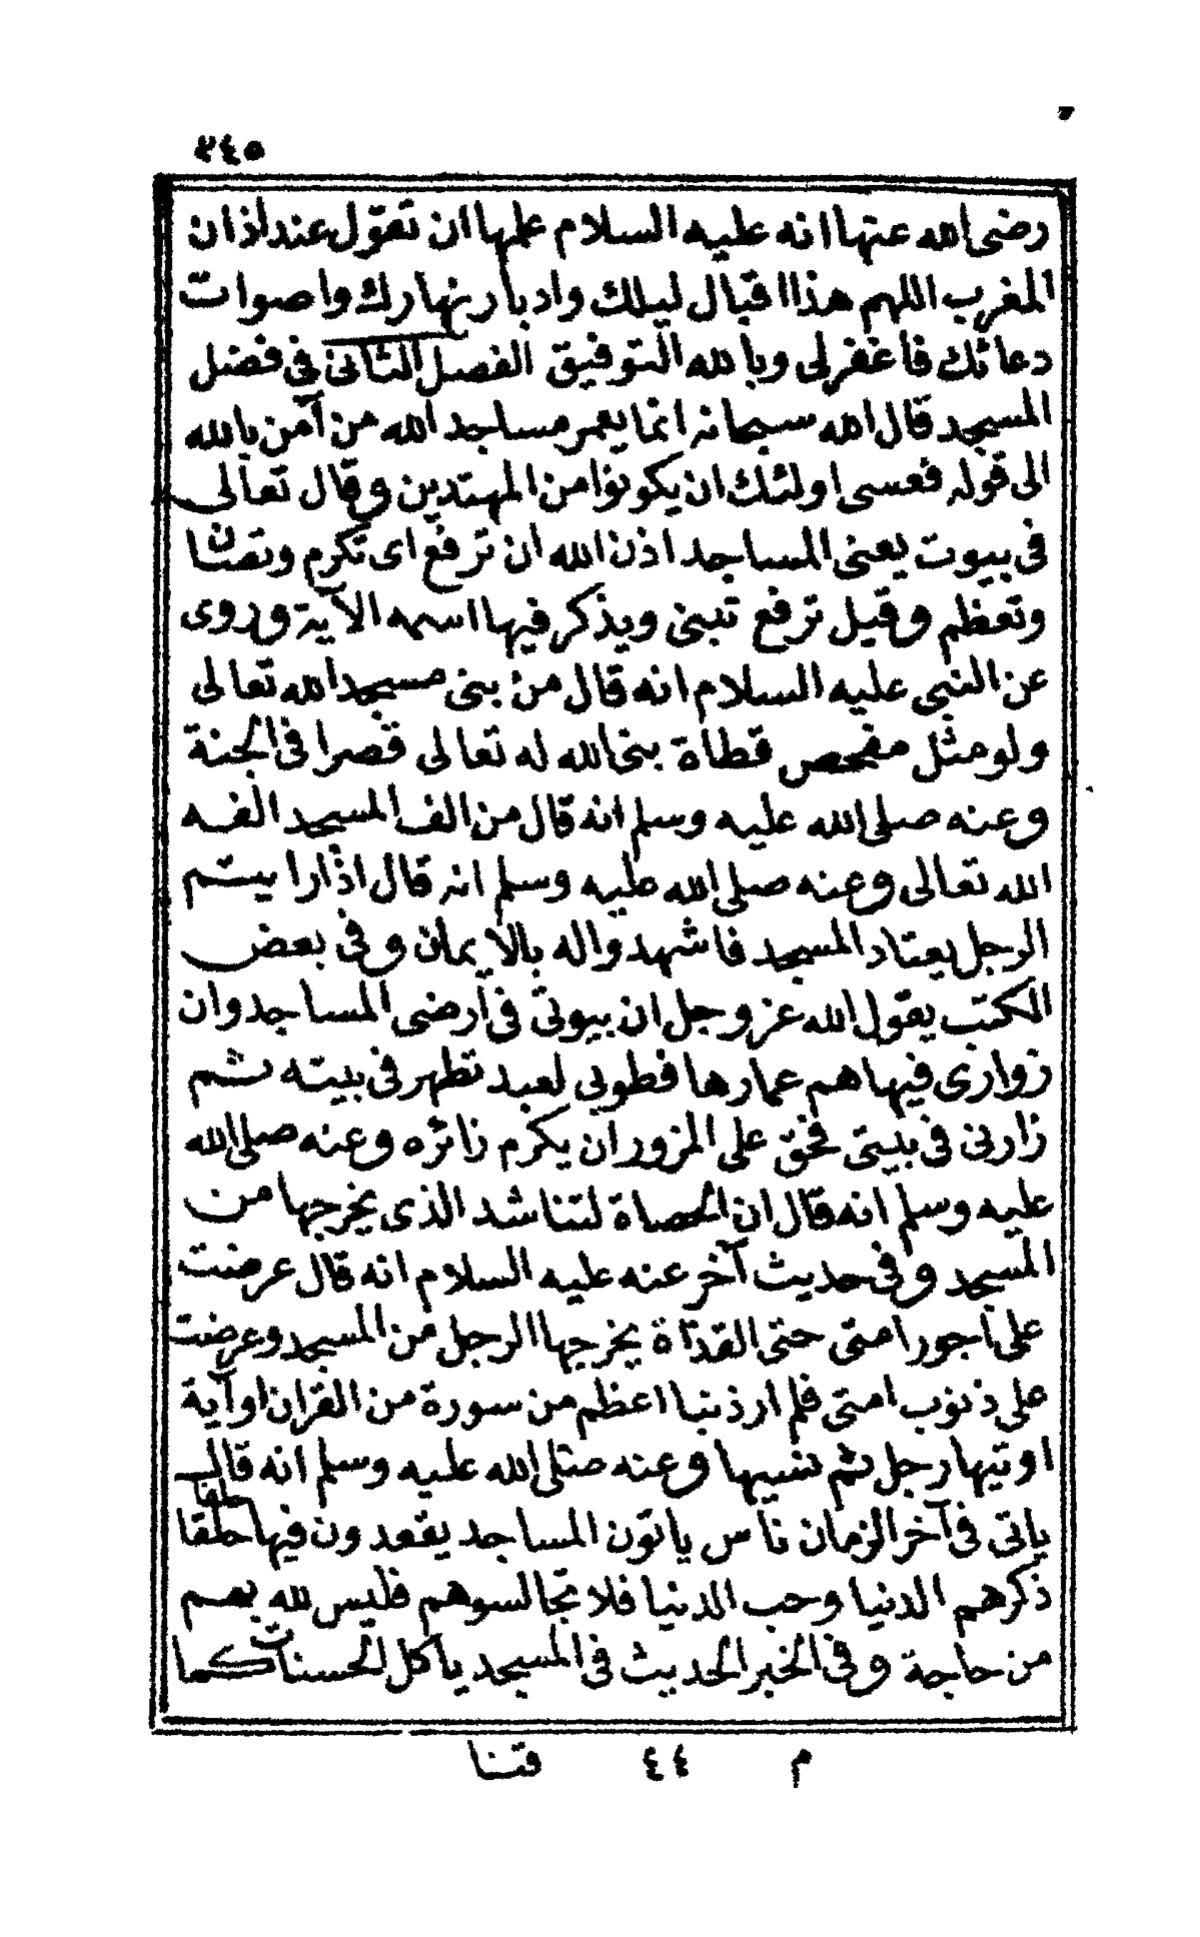 ٣٤٥
رضى الله عنها انه عليه السلام علمها ان تقول عند اذان
المغرب اللهم هذا اقبال ليلك وادبار نهارك واصوات
دعائك فاغفرلى وبالله التوفيق الفصل الثانى فى فضل
المسجد قال الله سبحانه انما يعمر مساجد الله من آمن بالله
الى قوله فعسى اولئك ان يكونوا من المهتدين وقال تعالى
فى بيوت يعنى المساجد اذن الله ان ترفع اى تكرم وتصان
وتعظم وقيل ترفع تبنى ويذكر فيها اسمه الآية وروى
عن النبى عليه السلام انه قال من بنى مسجدا لله تعالى
ولو مثل مفحص قطاة بنى الله له تعالى قصرا فى الجنة
وعنه صلى الله عليه وسلم انه قال من الف المسجد الفه
الله تعالى وعنه صلى الله عليه وسلم انه قال اذا رايتم
الرجل يعتاد المسجد فاشهدوا له بالايمان وفى بعض
الكتب يقول الله عز وجل ان بيوتى فى ارضى المساجد وان
زوارى فيها هم عمارها فطوبى لعبد تطهر فى بيته ثم
زارنى فى بيتى فحق على المزور ان يكرم زائره وعنه صلى الله
عليه وسلم انه قال ان الحصاة لتناشد الذى يخرجها من
المسجد وفى حديث آخر عنه عليه السلام انه قال عرضت
على اجور امتى حتى القذاة يخرجها الرجل من المسجد وعرضت
على ذنوب امتى فلم ار ذنبا اعظم من سورة من القران او آية
اوتيها رجل ثم نسيها وعنه صلى الله عليه وسلم انه قال
ياتى فى آخر الزمان ناس ياتون المساجد يقعدون فيها حلقا حلقا
ذكرهم الدنيا وحب الدنيا فلا تجالسوهم فليس لله بهم
من حاجة وفى الخبر الحديث فى المسجد ياكل الحسنات كما
م ٤٤ قتنا